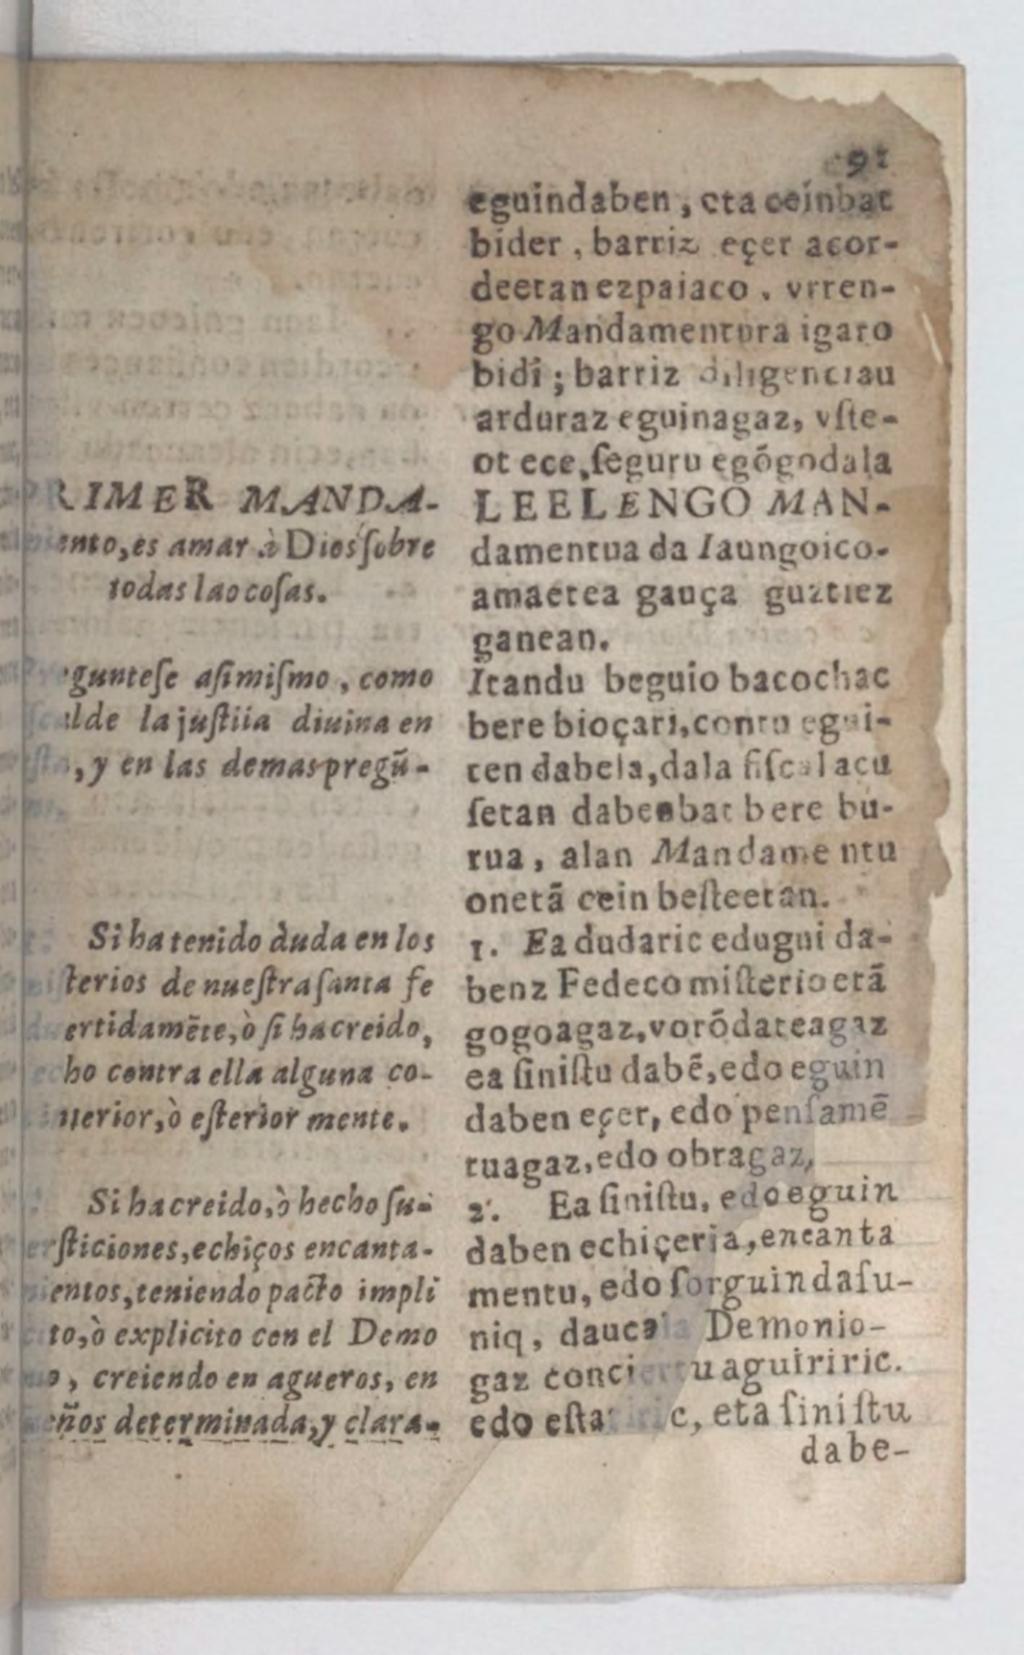 91
PRIMER MANDA-
ento,es amar à Dios ſobre
todas lao coſas.
gunteſe aſimiſmo, como
alde la juſtiia diuina en
, y en las demas pregũ-
Si ha tenido duda en los
ſterios de nueſtra ſanta fe
ertidamẽte,ò ſi ha creido,
ho contra ella alguna co-
nterior,ò eſterior mente.
Si ha creido,ò hecho ſu-
erſticiones,echiços encanta-
entos,teniendo pacto impli
to,ò explicito con el Demo
o, creiendo en agueros, en
eños determinada,y clara-
eguindaben, eta ceinbat
bider, barriz eçer acor-
deetan ezpaiaco. vrren-
go Mandamentura igaro
bidi; barriz diligenciau
arduraz eguinagaz, vſte-
ot ece,ſeguru egõgodala
LEELENGO MAN-
damentua da Iaungoico-
amaetea gauça guztiez
ganean.
Itandu beguio bacochac
bere bioçari,contu egui-
ten dabela,dala fiſcal acu
ſetan dabenbat bere bu-
rua, alan Mandamentu
onetã cein beſteetan.
1. Ea dudaric edugui da-
benz Fedeco miſterioetã
gogoagaz,vorõdateagaz
ea ſiniſtu dabẽ,edo eguin
daben eçer, edo penſamẽ
tuagaz,edo obragaz,
2. Ea ſiniſtu, edo eguin
daben echiçeria,encanta
mentu, edo ſorguindaſu-
niq, dauca Demonio-
gaz conciertu aguiriric.
edo eſta c, eta ſiniſtu
dabe-